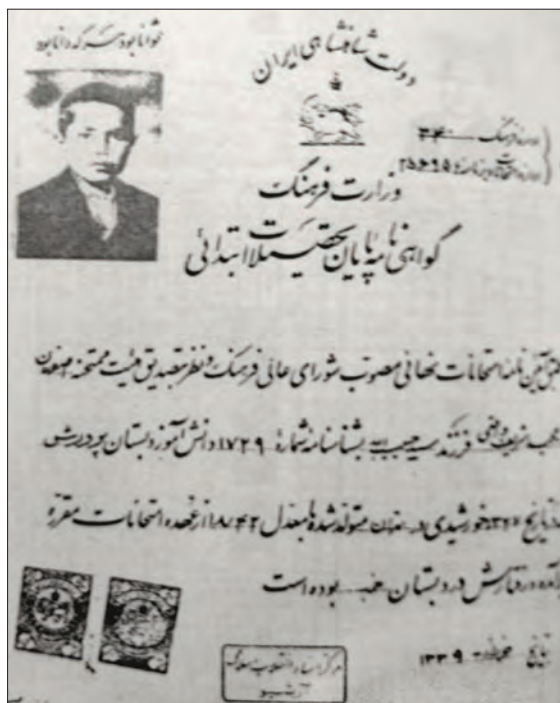 توانا بود هر که دانا بود
دولت شاهنشاهی ایران
وزارت فرهنگ
گواهی نامه پایان تحصیلات ابتدائی
آئین نامه امتحانات نهائی مصوب شورای عالی فرهنگ و نظر بتصدیق هیئت ممتحنه
فرزند سید حبیب الله بشناسنامه شمارهٔ ۱۷۲۹ دانش آموز دبستان پرورش
خورشیدی در متولد شده با معدل ۱۸/۴۲ از عهده امتحانات مقرره
رفتارش در دبستان خوب بوده است
تاریخ ۱۳۳۹
مرکز اسناد انقلاب اسلامی
آرشیو